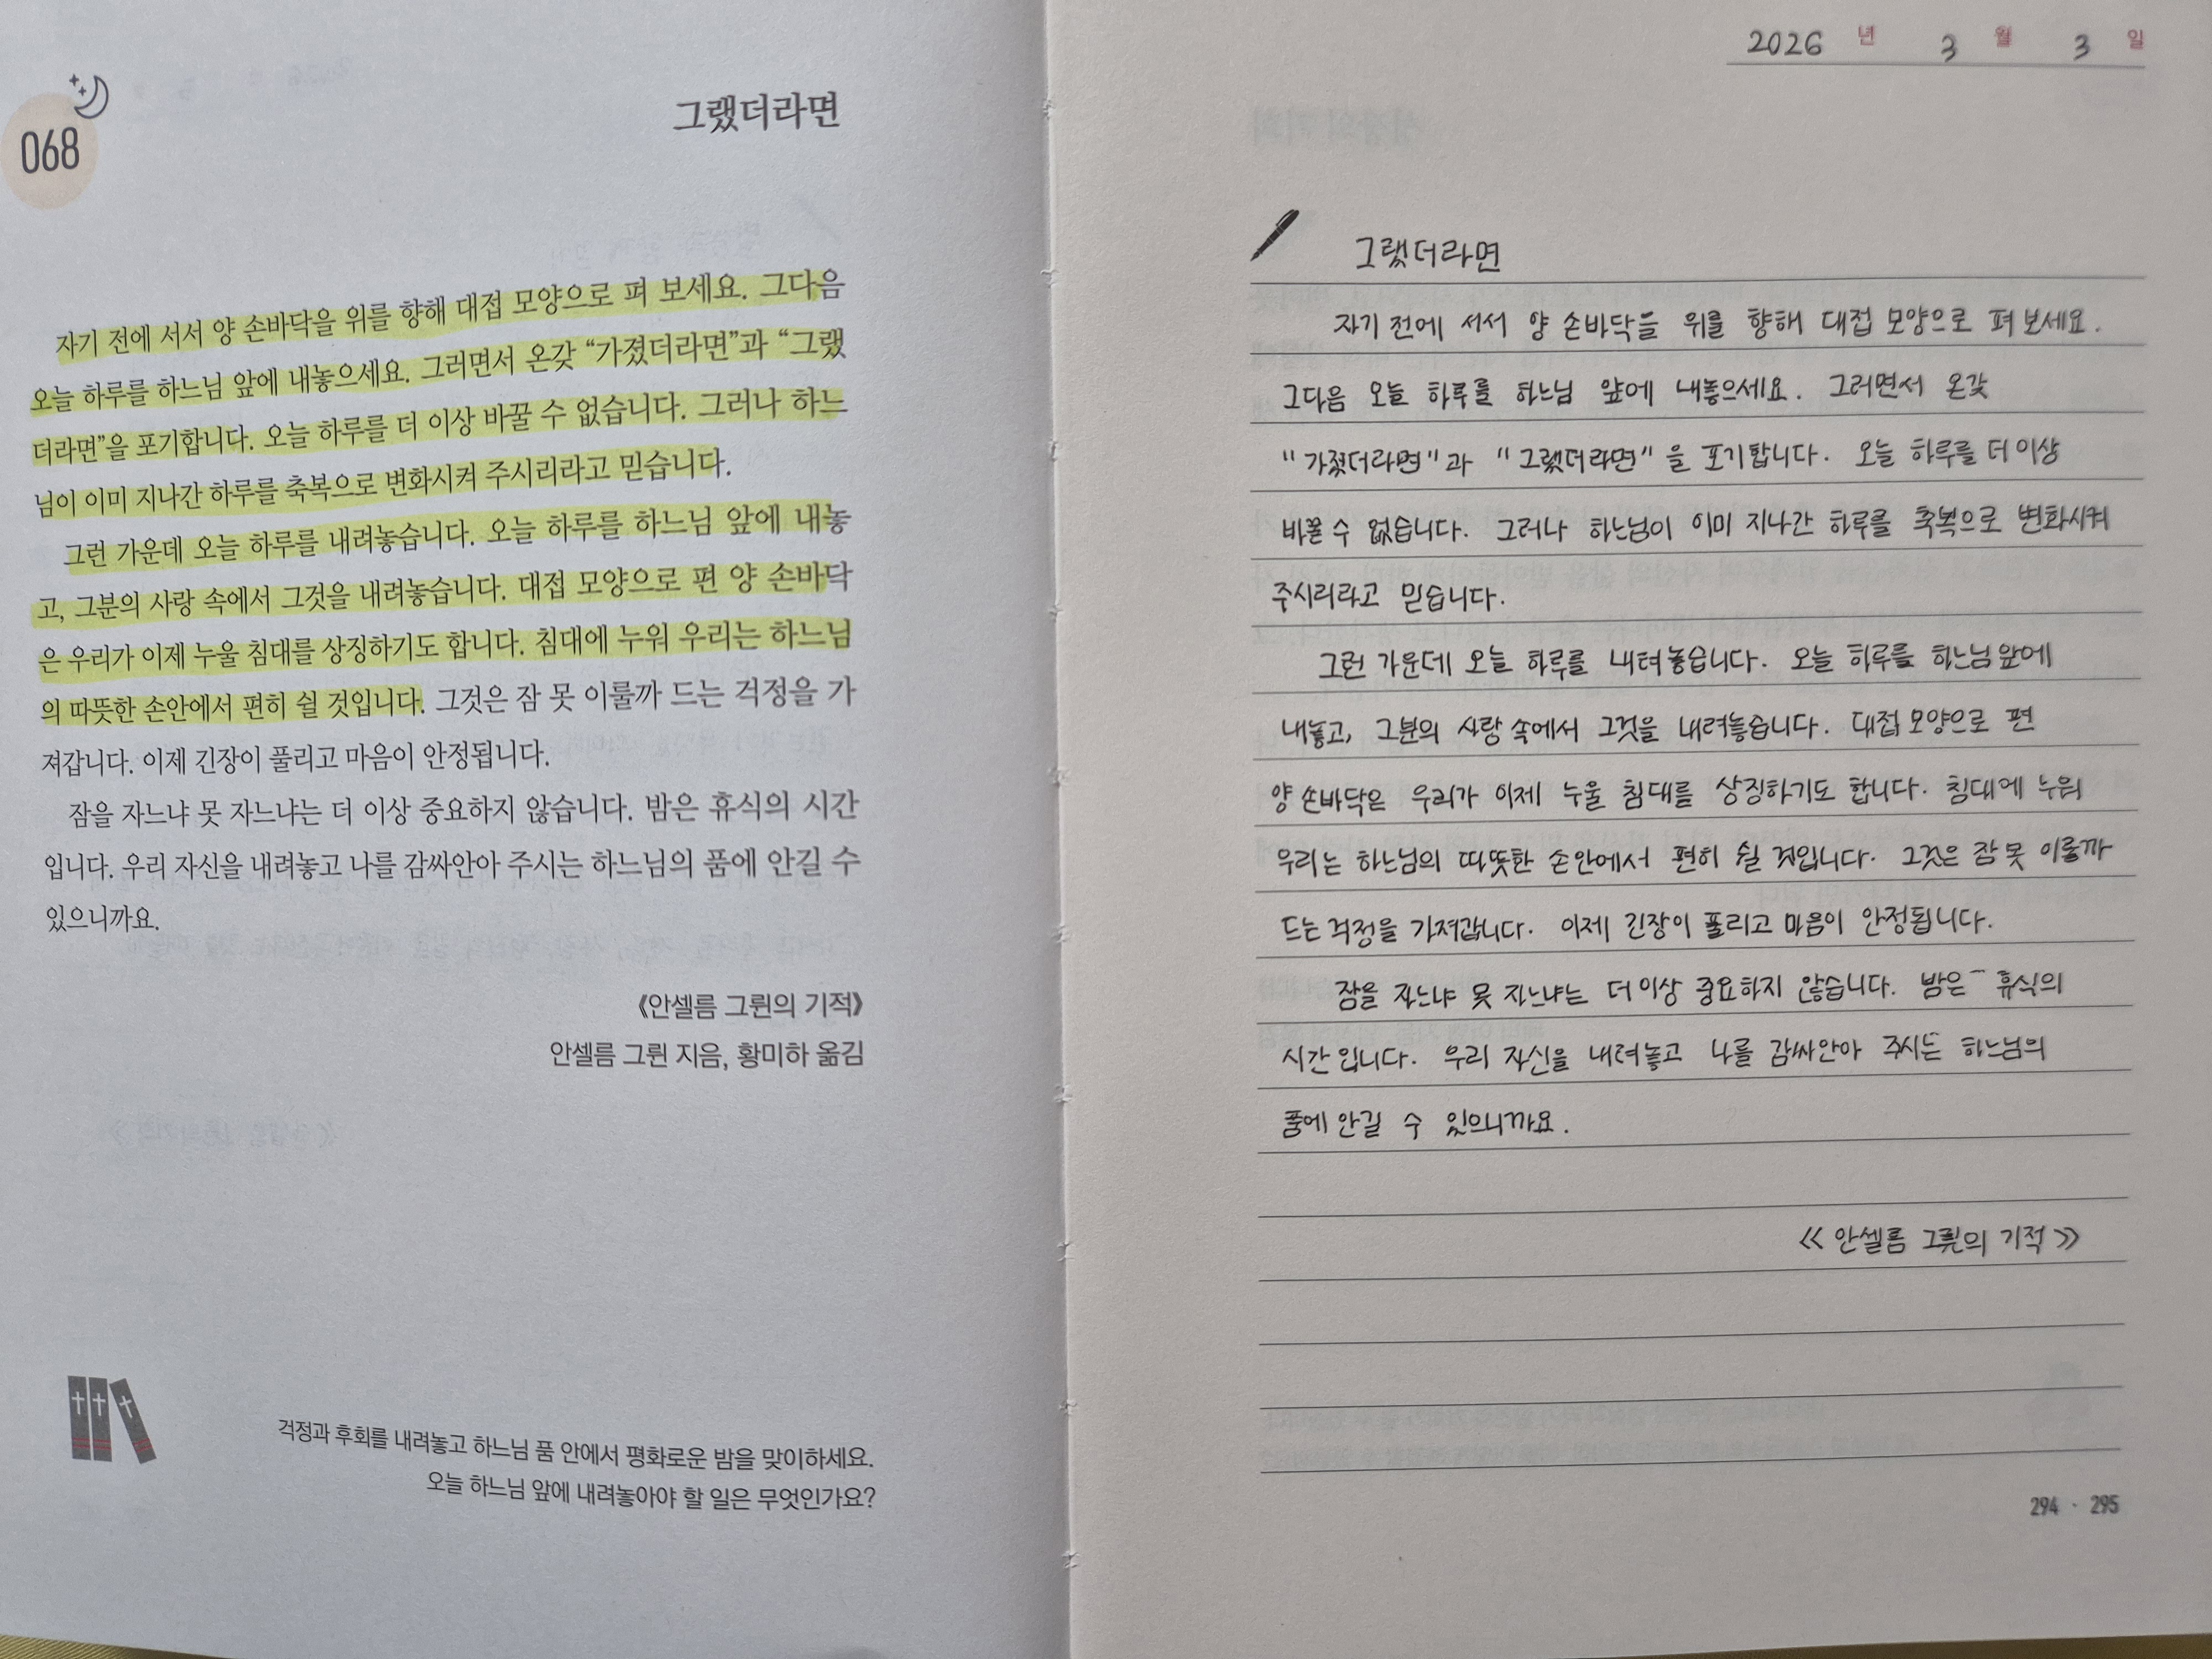 068
그랬더라면
자기 전에 서서 양 손바닥을 위를 향해 대접 모양으로 펴 보세요. 그다음
오늘 하루를 하느님 앞에 내놓으세요. 그러면서 온갖 “가졌더라면”과 “그랬
더라면”을 포기합니다. 오늘 하루를 더 이상 바꿀 수 없습니다. 그러나 하느
님이 이미 지나간 하루를 축복으로 변화시켜 주시리라고 믿습니다.
그런 가운데 오늘 하루를 내려놓습니다. 오늘 하루를 하느님 앞에 내놓
고, 그분의 사랑 속에서 그것을 내려놓습니다. 대접 모양으로 편 양 손바닥
은 우리가 이제 누울 침대를 상징하기도 합니다. 침대에 누워 우리는 하느님
의 따뜻한 손안에서 편히 쉴 것입니다. 그것은 잠 못 이룰까 드는 걱정을 가
져갑니다. 이제 긴장이 풀리고 마음이 안정됩니다.
잠을 자느냐 못 자느냐는 더 이상 중요하지 않습니다. 밤은 휴식의 시간
입니다. 우리 자신을 내려놓고 나를 감싸안아 주시는 하느님의 품에 안길 수
있으니까요.
《안셀름 그륀의 기적》
안셀름 그륀 지음, 황미하 옮김
걱정과 후회를 내려놓고 하느님 품 안에서 평화로운 밤을 맞이하세요.
오늘 하느님 앞에 내려놓아야 할 일은 무엇인가요?
2026 년 3 월 3 일
그랬더라면
자기 전에 서서 양 손바닥을 위를 향해 대접 모양으로 펴 보세요.
그다음 오늘 하루를 하느님 앞에 내놓으세요. 그러면서 온갖
"가졌더라면"과 "그랬더라면"을 포기합니다. 오늘 하루를 더 이상
바꿀 수 없습니다. 그러나 하느님이 이미 지나간 하루를 축복으로 변화시켜
주시리라고 믿습니다.
그런 가운데 오늘 하루를 내려놓습니다. 오늘 하루를 하느님 앞에
내놓고, 그분의 사랑 속에서 그것을 내려놓습니다. 대접 모양으로 편
양 손바닥은 우리가 이제 누울 침대를 상징하기도 합니다. 침대에 누워
우리는 하느님의 따뜻한 손안에서 편히 쉴 것입니다. 그것은 잠 못 이룰까
드는 걱정을 가져갑니다. 이제 긴장이 풀리고 마음이 안정됩니다.
잠을 자느냐 못 자느냐는 더 이상 중요하지 않습니다. 밤은 휴식의
시간입니다. 우리 자신을 내려놓고 나를 감싸안아 주시는 하느님의
품에 안길 수 있으니까요.
<< 안셀름 그륀의 기적 >>
294 · 295